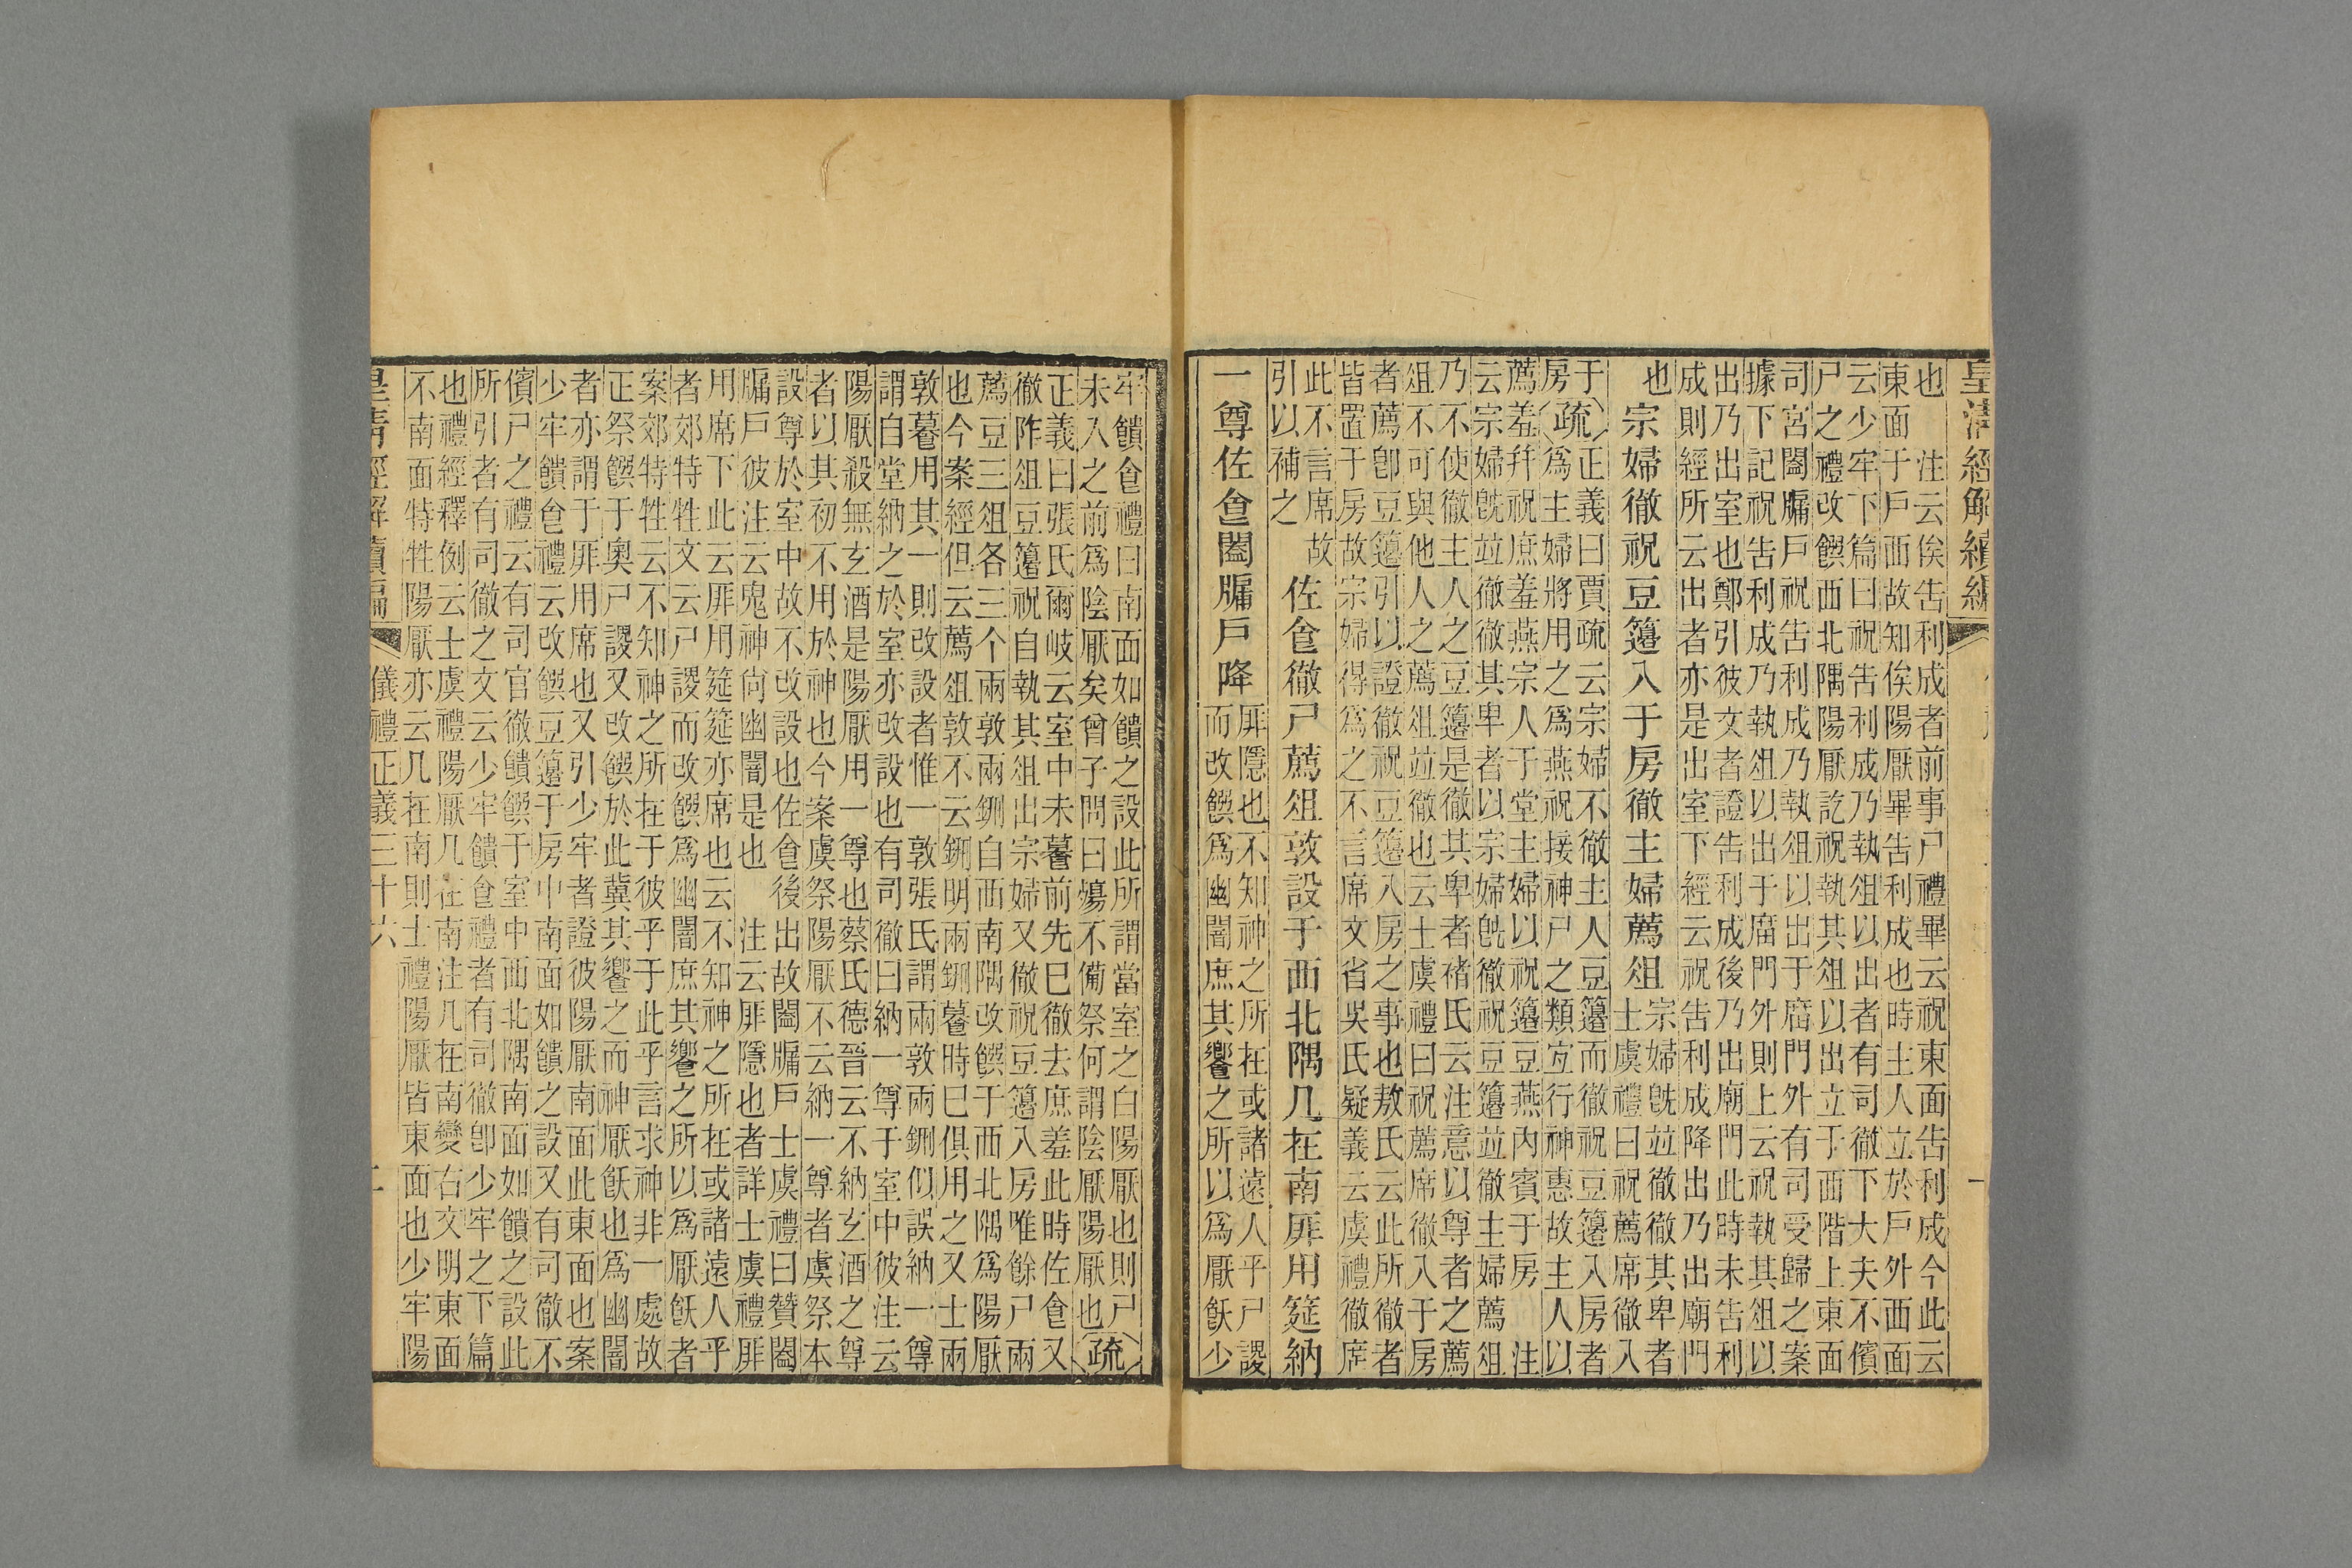 皇清經解續編
也　注云俟告利成者前事尸禮畢云祝東面告利成今此云
東面于戶西故知俟陽厭畢告利成也時主人立於戶外西面
云少牢下篇曰祝告利成乃執俎以出者有司徹下大夫不儐
尸之禮改饌西北隅陽厭訖祝執其俎以出立于西階上東面
司宮闔牖戶祝告利成乃執俎以出于庿門外有司受歸之案
據下記祝告利成乃執俎以出于庿門外則上云祝執其俎以
出乃出室也鄭引彼文者證告利成後乃出廟門此時未告利
成則經所云出者亦是出室下經云祝告利成降出乃出廟門
也　宗婦徹祝豆籩入于房徹主婦薦俎
宗婦旣並徹徹其卑者
士虞禮曰祝薦席徹入
于房
疏
正義曰賈疏云宗婦不徹主人豆籩而徹祝豆籩入房者
爲主婦將用之爲燕祝接神尸之類宐行神惠故主人以
薦羞幷祝庶羞燕宗人于堂主婦以祝籩豆燕內賓于房　注
云宗婦旣並徹徹其卑者以宗婦旣徹祝豆籩並徹主婦薦俎
乃不使徹主人之豆籩是徹其卑者褚氏云注意以尊者之薦
俎不可與他人之薦俎並徹也云士虞禮曰祝薦席徹入于房
者薦卽豆籩引以證徹祝豆籩入房之事也敖氏云此所徹者
皆置于房故宗婦得爲之不言席文省吳氏疑義云虞禮徹席
此不言席故
引以補之
佐食徹尸薦俎敦設于西北隅几在南厞用筵納
一尊佐食闔牖戶降
厞隱也不知神之所在或諸遠人乎尸謖
而改饌爲幽闇庶其饗之所以爲厭飫少
牢饋食禮曰南面如饋之設此所謂當室之白陽厭也則尸
未入之前爲陰厭矣曾子問曰殤不備祭何謂陰厭陽厭也
疏
正義曰張氏爾岐云室中未䬸前先已徹去庶羞此時佐食又
徹阼俎豆籩祝自執其俎出宗婦又徹祝豆籩入房唯餘尸兩
薦豆三俎各三个兩敦兩鉶自西南隅改饌于西北隅爲陽厭
也今案經但云薦俎敦不云鉶明兩鉶䬸時已俱用之又士兩
敦䬸用其一則改設者惟一敦張氏謂兩敦兩鉶似誤納一尊
謂自堂納之於室亦改設也有司徹曰納一尊于室中彼注云
陽厭殺無玄酒是陽厭用一尊也蔡氏德晉云不納玄酒之尊
者以其初不用於神也今案虞祭陽厭不云納一尊者虞祭本
設尊於室中故不改設也佐食後出故闔牖戶士虞禮曰贊闔
牖戶彼注云鬼神尙幽闇是也　注云厞隱也者詳士虞禮厞
用席下此云厞用筵筵亦席也云不知神之所在或諸遠人乎
者郊特牲文云尸謖而改饌爲幽闇庶其饗之所以爲厭飫者
案郊特牲云不知神之所在于彼乎于此乎言求神非一處故
正祭饌于奧尸謖又改饌於此冀其饗之而神厭飫也爲幽闇
者亦謂于厞用席也又引少牢者證彼陽厭南面此東面也案
少牢饋食禮云改饌豆籩于房中南面如饋之設又有司徹不
儐尸之禮云有司官徹饋饌于室中西北隅南面如饋之設此
所引者有司徹之文云少牢饋食禮者有司徹卽少牢之下篇
也禮經釋例云士虞禮陽厭几在南注几在南變右文明東面
不南面特牲陽厭亦云几在南則士禮陽厭皆東面也少牢陽
皇清經解續編
儀禮正義三十六